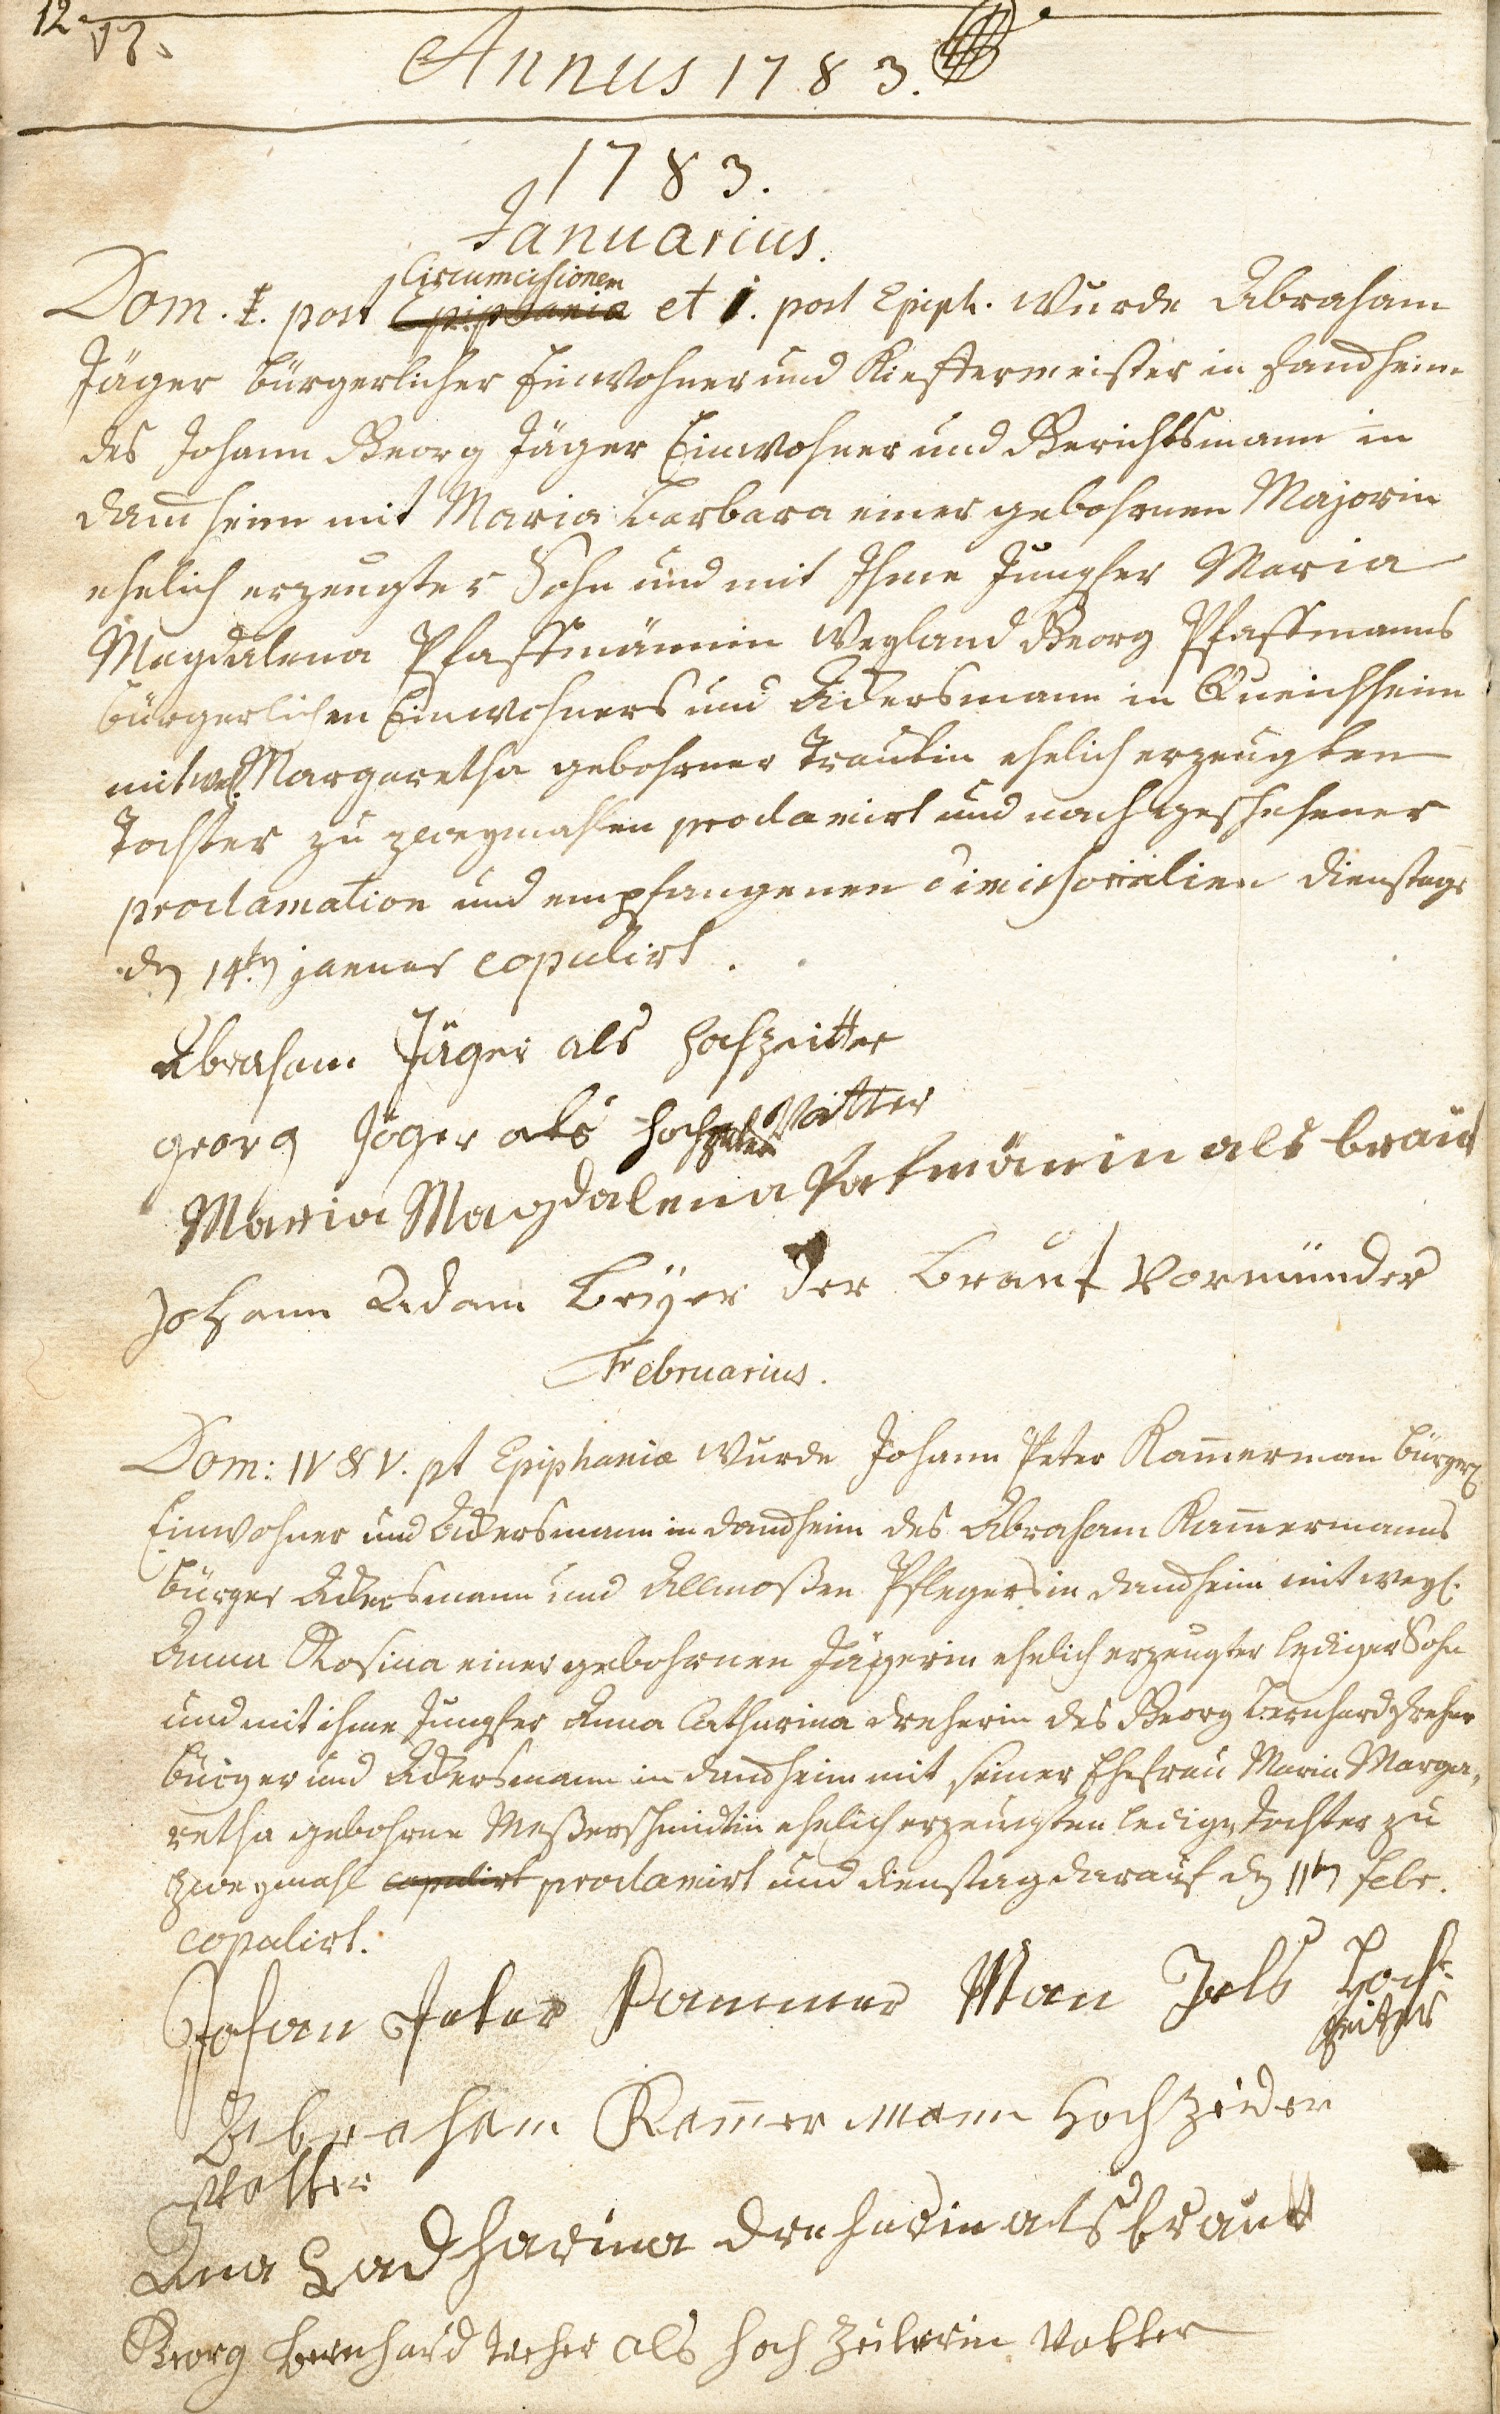 12.
13.
Annus 1783.
1783.
Januarius.
Circumcisionem
Dom. I. post Epiphaniæ et 1. post Epiph. wurde Abraham
Jäger bürgerlicher Einwohner und Kieffermeister in Damheim
des Johann Georg Jäger Einwohner und Gerichtsmann in
Damheim mit Maria Barbara einer gebohrnen Majorin
ehelich erzeugter Sohn und mit Ihme Jungfer Maria
Magdalena Pfaffmännin weyland Georg Pfaffmanns
bürgerlichen Einwohners und Ackersmann in Queichheim
mit weyl. Margaretha gebohrner Trautin ehelich erzeugten
Tochter zu zweymahlen proclamirt und nach geschehener
proclamation und empfangenen dimissorialien Dienstags
den 14ten jenner copulirt.
Abraham Jäger als Hochzeitter
georg Jäger als Hochzeiter Vatter
Maria Magdalena Pafmänin als braut
Johann Adam Beÿer der Braut Vormünder
Februarius.
Dom: IV & V. pt Epiphaniæ wurde Johann Peter Kam̅erman bürgerl.
Einwohner und Ackersmann in Damheim des Abraham Kam̅ermanns
bürger Ackersmann und Allmoßen Pflegers in Damheim mit weyl.
Anna Rosina einer gebohrnen Jägerin ehelich erzeugter lediger Sohn
und mit ihme Jungfer Anna Catharina Dreherin des Georg Bernhard Dreher
bürger und Ackersmann in Damheim mit seiner Ehefrau Maria Marga-
retha gebohrne Meßerschmidtin ehelich erzeugten ledige Tochter zu
zweymahl copulirt proclamirt und Dienstag darauf den 11ten Febr.
copulirt.
Johan Peter Kammer Man Als Hoch-
zeiter
Abraham Kam̅er mann Hoch zeider
Vatter
Ana Cadharina Dreherin als braut
Georg Bernhard Treher als Hoch Zeiterin Vatter